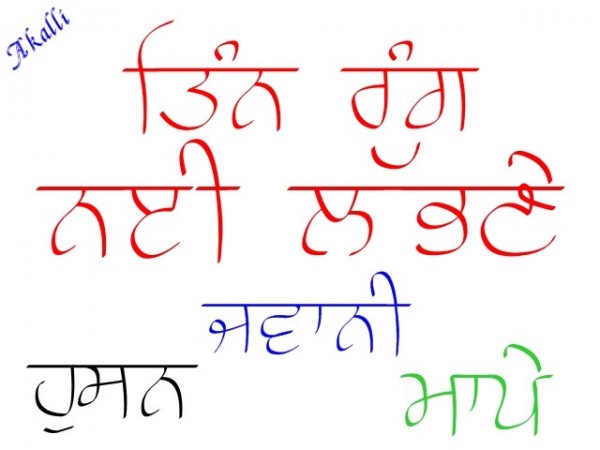 Akalli
ਤਿੰਨ ਰੁੰਗ
ਨਈ ਲਭਣੇ
ਜਵਾਨੀ
ਹੁਸਨ ਮਾਪੇ